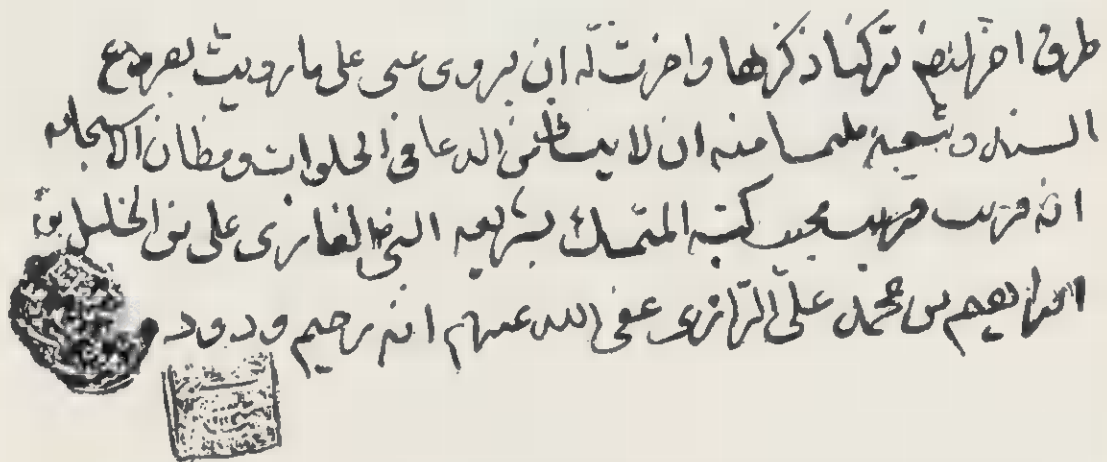 طرق اخر لبعضهم تركنا ذكرها واجزت له ان يروى عنى على ما رويت بعد مراجع
السند وتتبعه ملتمسا منه ان لا ينسانى من الدعا فى الخلوات ومظان الاستجابه
انه قريب مجيب كتبه المتمسك بشريعه النبى الغازى على بن الخليل بن
ابراهيم بن محمد على الرازى عفى الله عنهم انه رحيم ودود